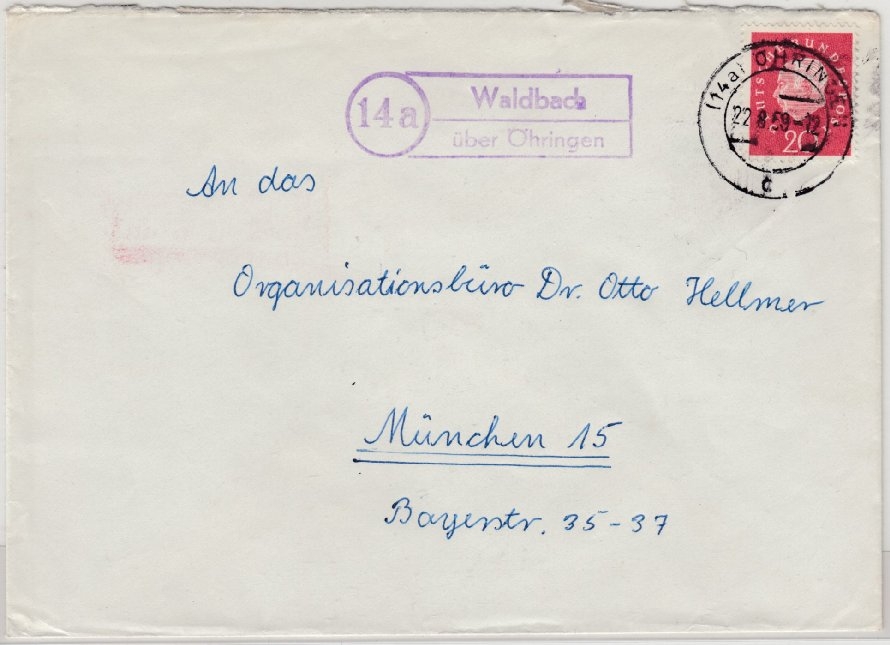 14a
Waldbach
über Öhringen
DEUTSCHE BUNDESPOST
20
(14a) ÖHRINGEN
22.8.59-12
c
An das
Organisationsbüro Dr. Otto Hellmer
München 15
Bayerstr. 35-37